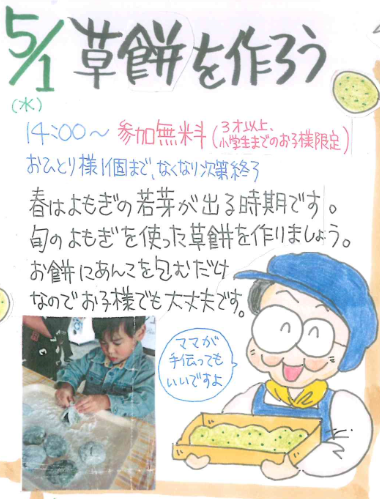 5/1 草餅を作ろう
(水)
14:00〜 参加無料(3才以上、小学生までのお子様限定)
おひとり様1個まで、なくなり次第終了
春はよもぎの若芽が出る時期です。
旬のよもぎを使った草餅を作りましょう。
お餅にあんこを包むだけ
なのでお子様でも大丈夫です。
ママが
手伝っても
いいですよ